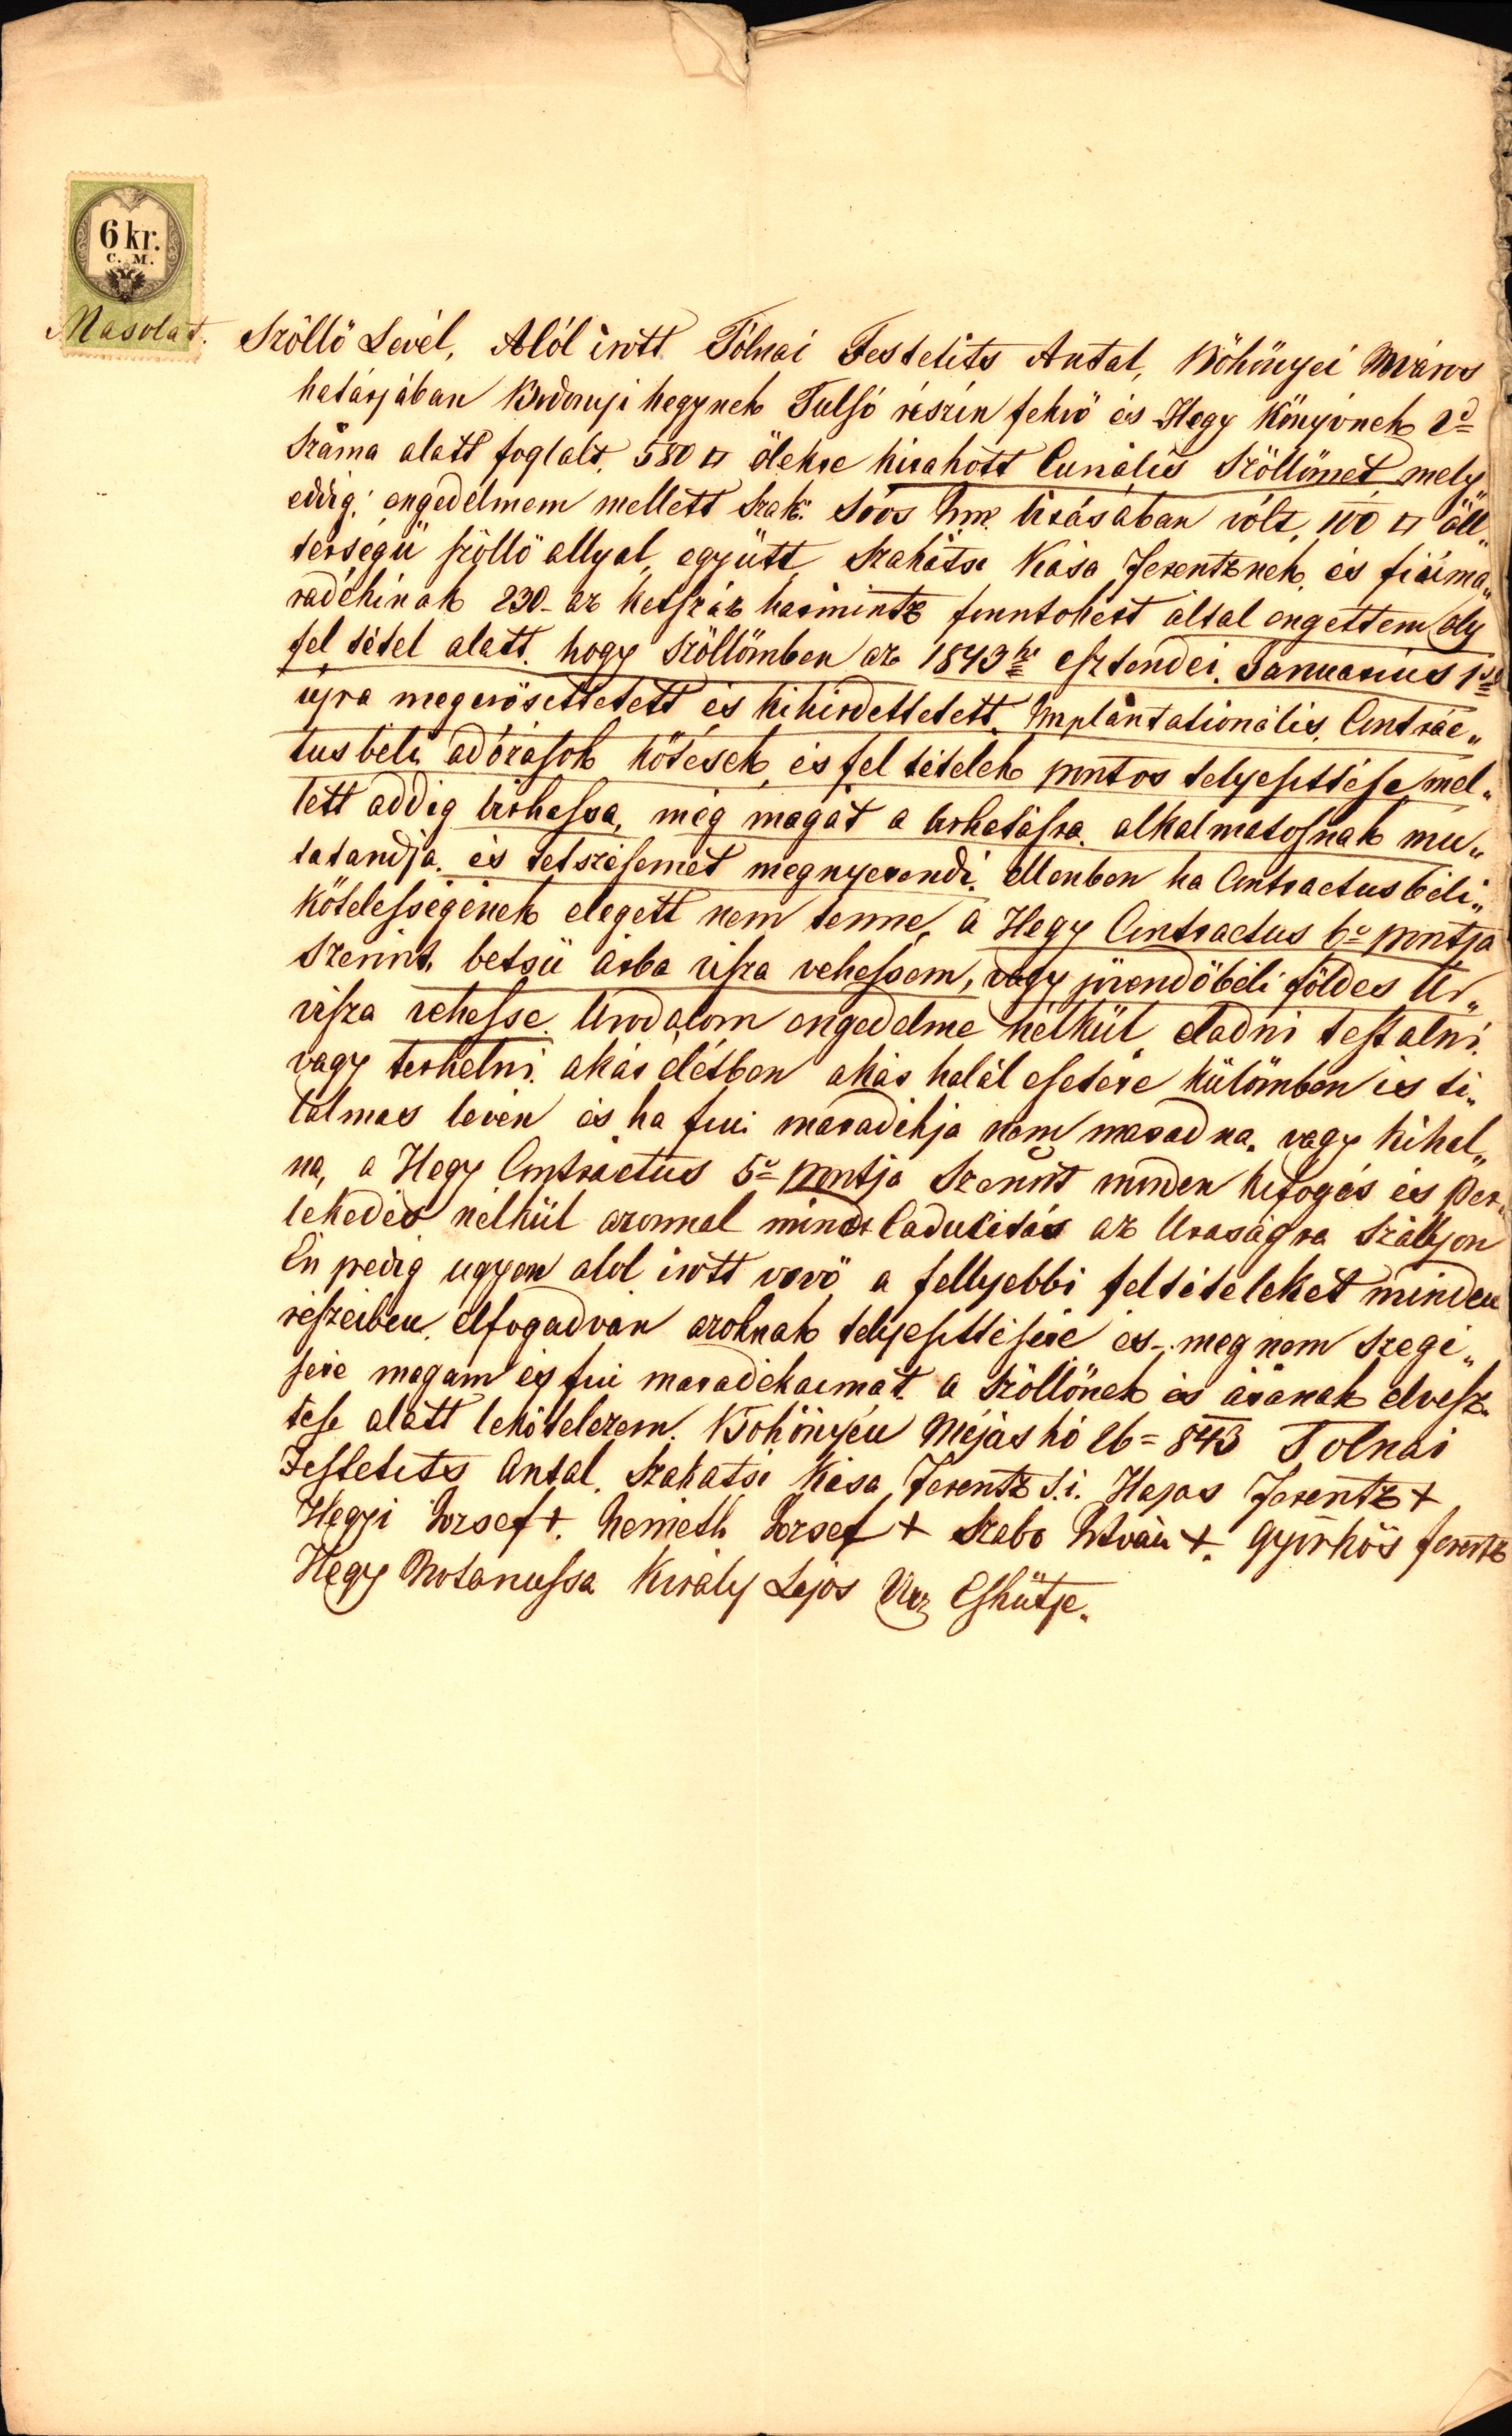 6 kr.
C. M.
Másolat.
Szöllö Levél, Alól irott Tólnai Festetits Antal, Böhönyei Mváros
határjában Bodonyi hegynek Tulsó részin fekvö és Hegy Könyvnek 2d
Száma alatt foglalt, 580 □ ölekre kirakott Curiális Szöllömet mely
eddig: engedelmem mellett Szak: Soós birásában vólt, 100 □ öll„
térségü szöllö allyal, együtt Szakátsi Kása Ferentznek, és fiúi ma„
radékinak 230 - az kétszáz harmintz forintokért által engettem oly
fel tétel alatt, hogy szöllömben az 1843ki esztendei Januarius 1sö
újra megerösittetett és kihirdettetett Implántationális, Contrac„
tusbeli adózások kötések, és fel tételek pontos telyesittése mel„
lett addig birhassa, még magát a birhatásra alkalmatosnak mu„
tatandja, és tetszésemet megnyerendi. Ellenben ha Contractusbéli„
Kötelességének elegett nem tenne, a Hegy Contractus 6o pontja
Szerint, betsü árba visza vehessem, vagy jövendöbéli földes Ur„
visza vehesse. Urodalom engedelme nélkül eladni testálni
vagy terhelni akár életben akár halál esetére külömben is ti„
lalmas lévén és ha fiui maradékja nem maradna, vagy kihal„
na, a Hegy Contractus 5o pontja Szerint minden kifogás és per„
lekedés nélkül azonnal mint Caducitás az Uraságra Szállyon
Én pedig ugyan alol irott vevö a fellyebbi feltételeket minden
részeiben elfogadván azoknak telyesittésére és meg nem szegé„
sére magam és fiui maradékaimat a Szöllönek és árának elvesz„
tése alatt lekötelezem. Böhönyén Májas hó 26 = 843 Tolnai
Festetits Antal. Szakátsi Kása Ferentz s.i. Hajas Ferentz +
Hegyi Jozsef +. Németh Jozsef + Szabo István +. György Ferentz
Hegy Király Lajos Esküttje.